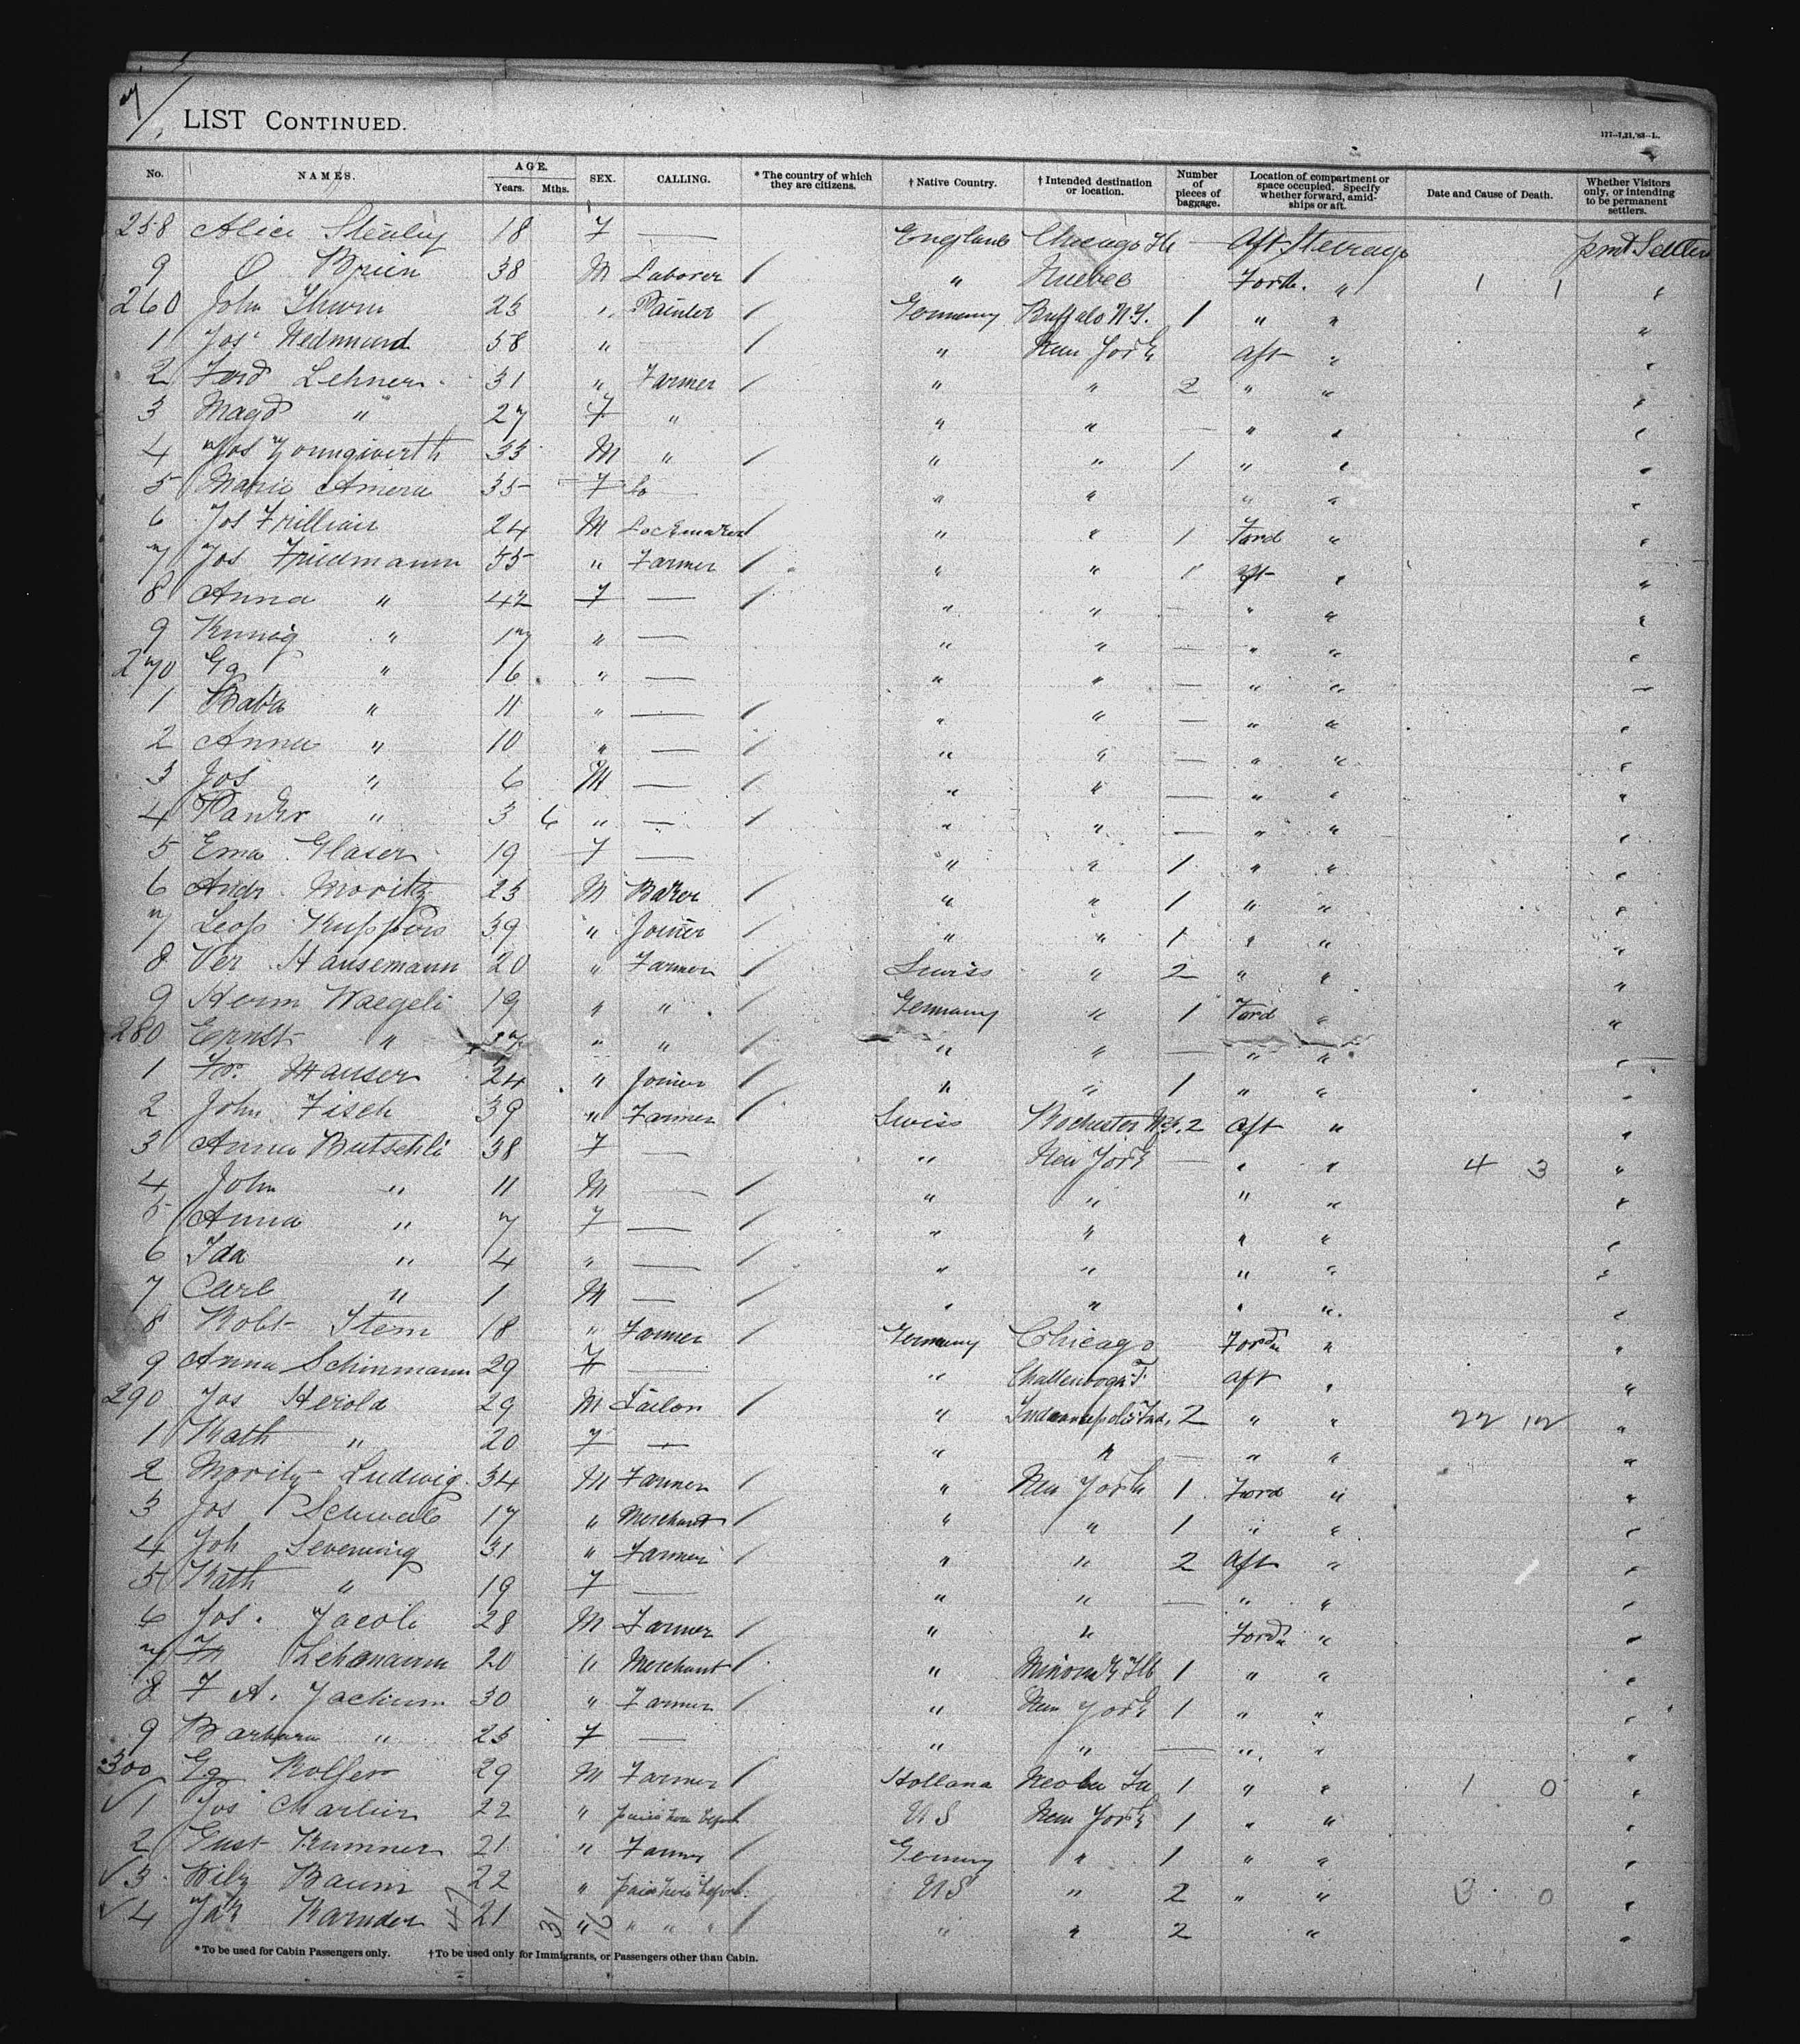 7
LIST CONTINUED.
177--7,21,'83--L.
No. NAMES. AGE. Years. Mths. SEX. CALLING. * The country of which they are citizens. † Native Country. † Intended destination or location. Number of pieces of baggage. Location of compartment or space occupied. Specify whether forward, amidships or aft. Date and Cause of Death. Whether Visitors only, or intending to be permanent settlers.
258 Alice 18 F — England Chicago — Aft Steerage pmt Settler
9 O Brien 38 M Laborer / " Quebec Forth. " 1 1 "
260 John Thurm 25 " Painter / Germany Buffalo N.Y. 1 " " "
1 Jos 58 " — / " New York Aft " "
2 Ferd Lehner 31 " Farmer / " " 2 " " "
3 Magd " 27 F " " " — " " "
4 Jos Youngwerth 33 M " / " " 1 " " "
5 Marie 35 F — " " " " "
6 Jos 24 M Lockmaker / " " 1 Ford " "
7 Jos Friedmann 55 " Farmer / " " 1 Aft " "
8 Anna " 42 F — / " " — " " "
9 Kunig " 17 " — " " — " " "
270 Gg " 16 " — " " — " " "
1 Baba " 11 " — / " " — " " "
2 Anna " 10 " — / " " — " " "
3 Jos " 6 M — / " " — " " "
4 " 3 6 " — / " " — " " "
5 Ema Glaser 19 F — " " 1 " " "
6 Andr Moritz 23 M Baker / " " 1 " " "
7 Leop 39 " Joiner / " " 1 " " "
8 Ver Hausemann 20 " Farmer / Swiss " 2 " " "
9 Herm Waegeli 19 " " / Germany " 1 Ford " "
280 Ernst " " " / " " — " " "
1 Fr. Mauser 24 " Joiner / " " 1 " " "
2 John Fisch 39 " Farmer / Swiss Rochester N.Y. 2 Aft " "
3 Anna Butschli 38 F — " New York — " " 4 3 "
4 John " 11 M — / " " " " "
5 Anna " 7 F — / " " " " "
6 Ida " 4 " — / " " " " "
7 Carl " 1 M — / " " " " "
8 Robt 18 " Farmer / Germany Chicago Ford " "
9 Anna Schinmann 29 F — " Aft " "
290 Jos Herold 29 M Tailor / " Indianapolis Ind. 2 " " 22 12 "
1 Kath " 20 F — " " — " " "
2 Moritz Ludwig 34 M Farmer / " New York 1 Ford " "
3 Jos Schwab 17 " Merchant / " " 1 " " "
4 Joh Severning 31 " Farmer / " " 2 Aft " "
5 Kath " 19 F — " " — " " "
6 Jos. Jacob 28 M Farmer / " " Ford " "
7 Fr Lehmann 20 " Merchant / " 1 " " "
8 F A. Jachum 30 " Farmer / " New York 1 " " "
9 Barbara " 25 F — " " — " " "
300 Gg Rolfer 29 M Farmer / Holland 1 " " 1 0 "
✓ 1 Jos Charlier 22 " / US New York 1 " " "
2 Gust Kummer 21 " Farmer / Germany " 1 " " "
✓ 3 Baum 22 " US " 2 " " 3 0 "
✓ 4 Jak 47 21 31 " 16 " " " / " " 2 " "
*To be used for Cabin Passengers only. †To be used only for Immigrants, or Passengers other than Cabin.